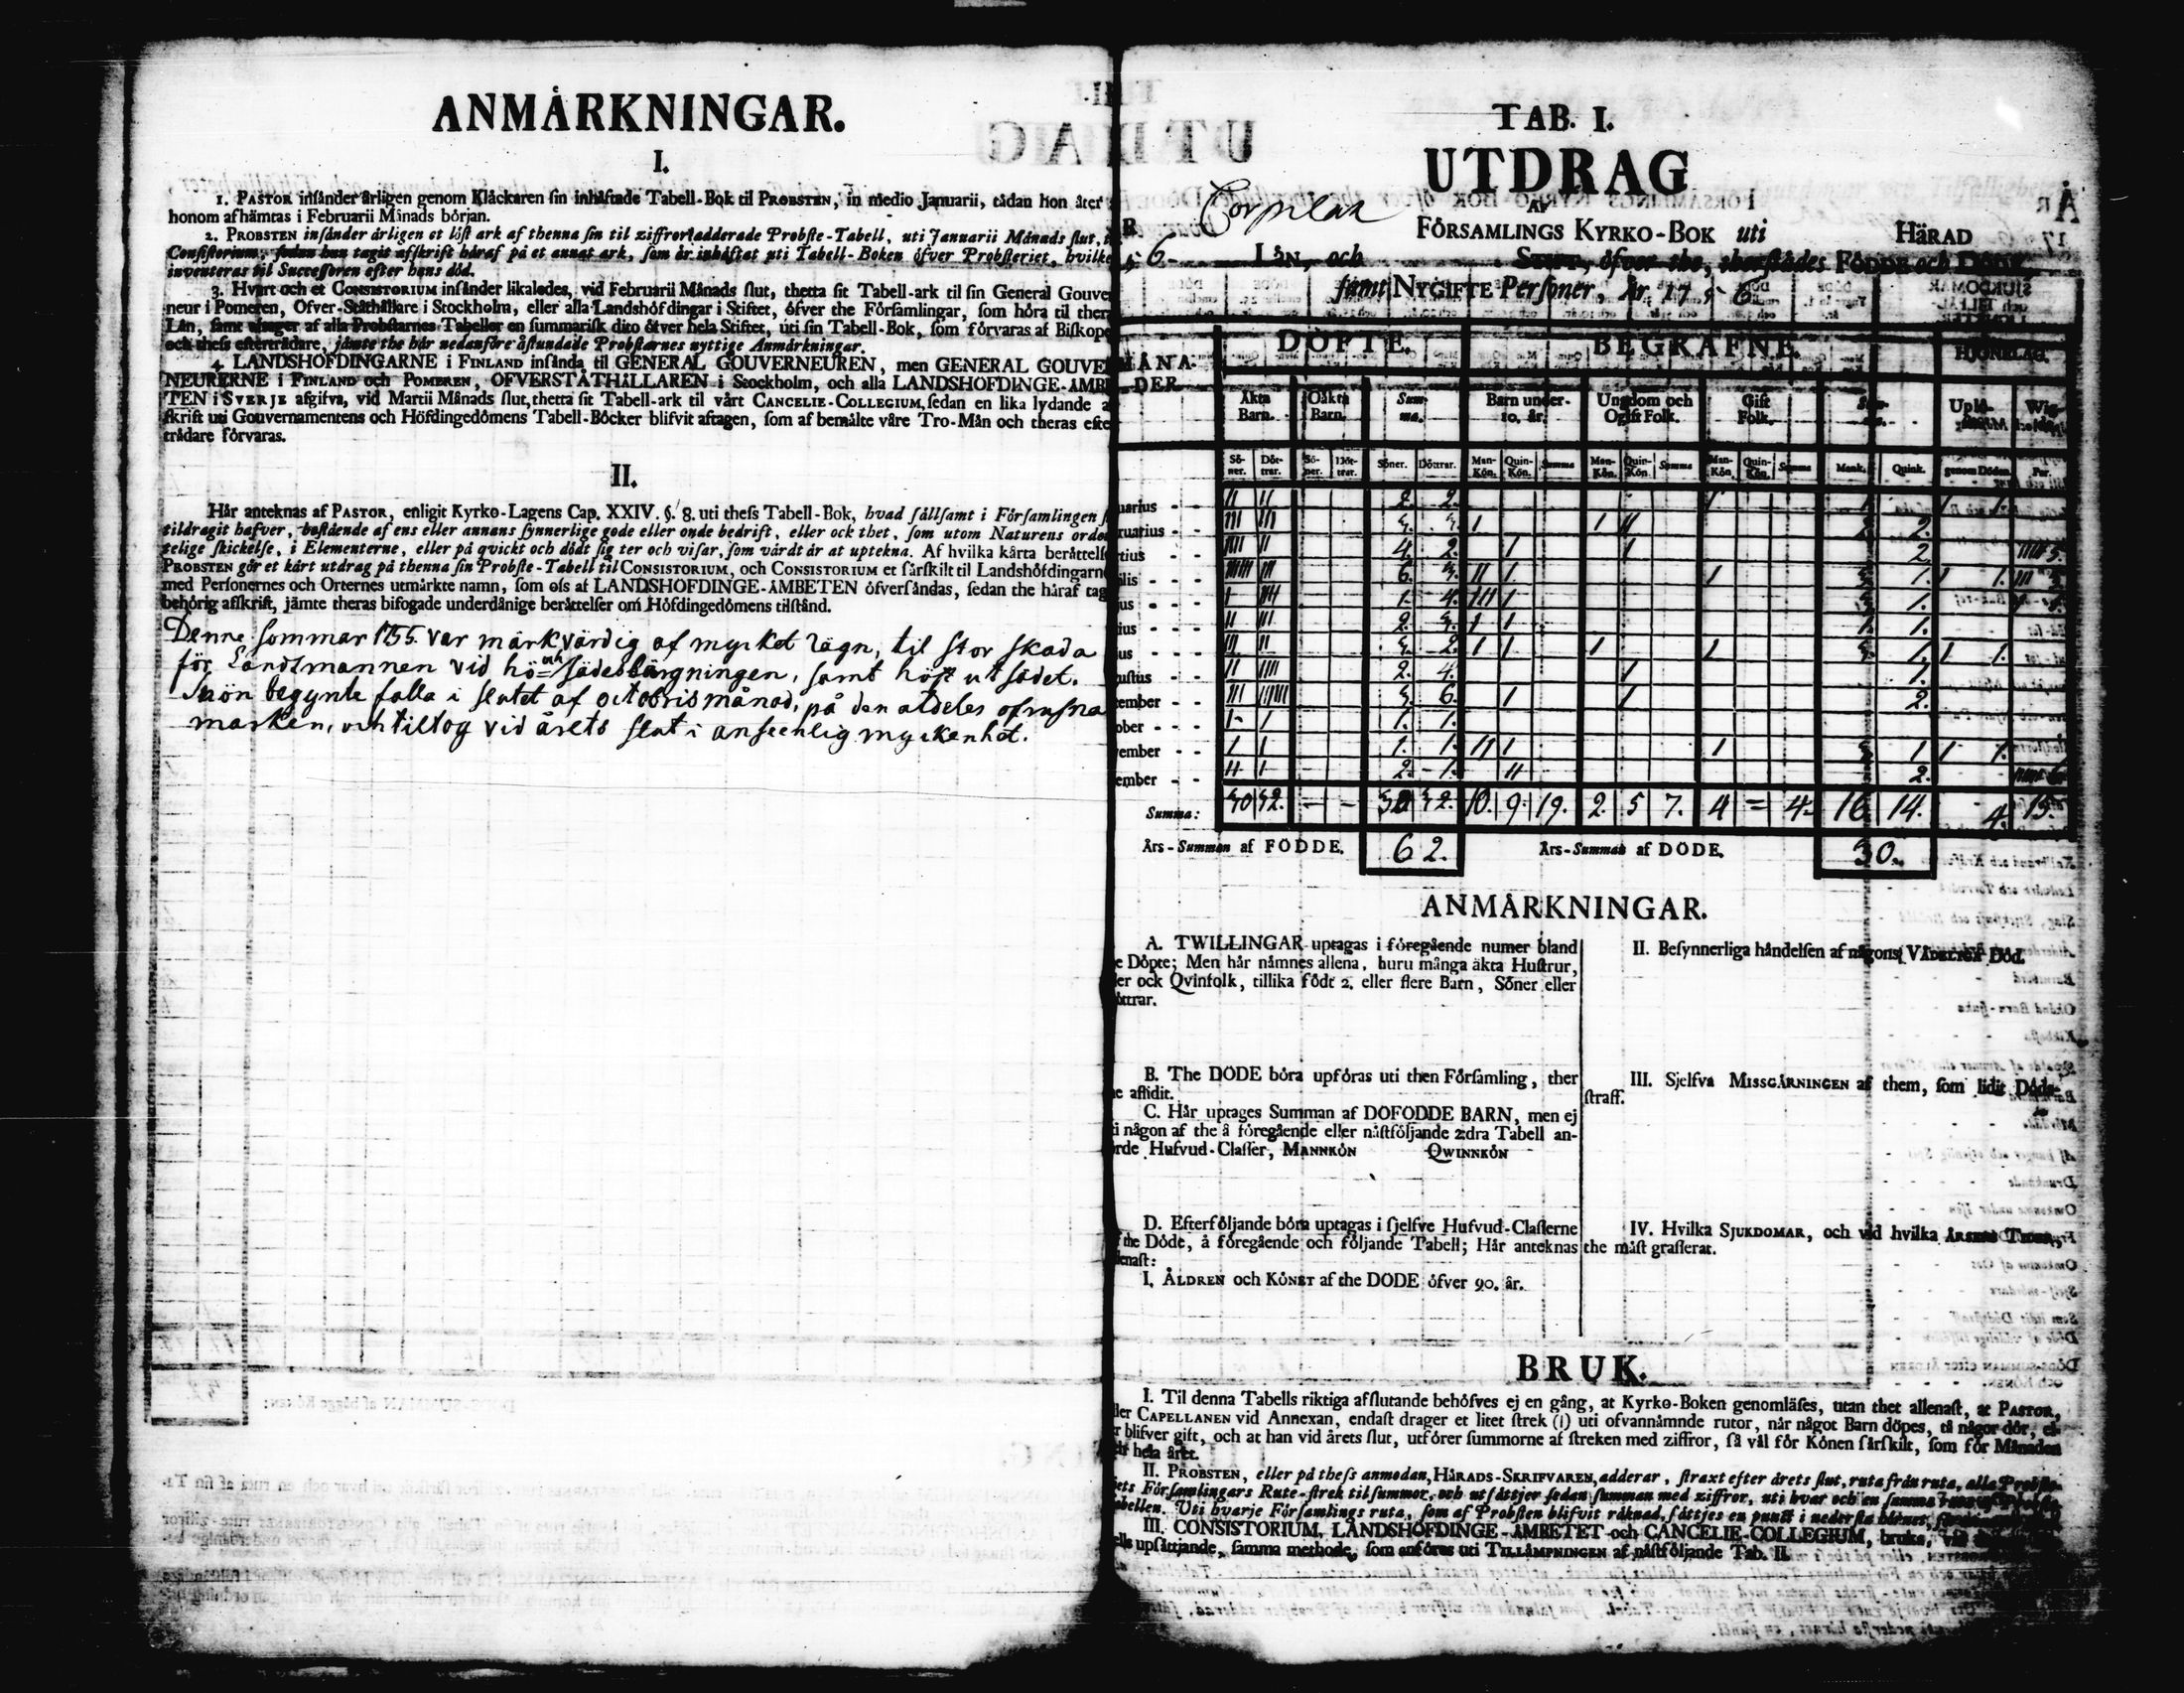 ANMÅRKNINGAR.
I.
1. PASTOR insånder årligen genom Klåckaren sin inhåftade Tabell-Bok til PROBSTEN, in medio Januarii, tådan hon åter
honom afhåmtas i Februarii Månads början.
2. PROBSTEN insånder årligen et löst ark af thenna sin til ziffror adderade Probste-Tabell, uti Januarii Månads slut,
Consistorium; sedan han tagit afskrift håraf på et annat ark, som år inhåftat uti Tabell-Boken öfver Probsteriet, hvilke
inventeras til Successoren efter hans död.
3. Hvart och et CONSISTORIUM insånder likaledes, vid Februarii Månads slut, thetta sit Tabell-ark til sin General Gouve
neur i Pomeren, Öfver-Ståthållare i Stockholm, eller alla Landshöfdingar i Stiftet, öfver the Församlingar, som höra til ther
Lån, samt af alla Probstarnes Tabeller en summarisk dito öfver hela Stiftet, uti sin Tabell-Bok, som förvaras af Biskope
och thess eftertrådare, jåmte the hår nedanföre åstundade Probstarnes nyttige Anmårkningar.
4. LANDSHÖFDINGARNE i FINLAND insånda til GENERAL GOUVERNEUREN, men GENERAL GOUVE
NEURERNE i FINLAND och POMEREN, ÖFVERSTÅTHÅLLAREN i Stockholm, och alla LANDSHÖFDINGE-ÅMB
TEN i SVERJE afgifva, vid Martii Månads slut, thetta sit Tabell-ark til vårt CANCELIE-COLLEGIUM, sedan en lika lydande a
skrift uti Gouvernamentens och Höfdingedömens Tabell-Böcker blifvit aftagen, som af bemålte våre Tro-Mån och theras efte
trådare förvaras.
II.
Hår anteknas af PASTOR, enligit Kyrko-Lagens Cap. XXIV. §. 8. uti thess Tabell-Bok, hvad sållsamt i Församlingen
tildragit hafver, bestående af ens eller annans synnerlige gode eller onde bedrift, eller ock thet, som utom Naturens orde
telige skickelse, i Elementerne, eller på qvickt och dödt sig ter och visar, som vårdt år at uptekna. Af hvilka kårta beråttels
PROBSTEN gör et kårt utdrag på thenna sin Probste-Tabell til CONSISTORIUM, och CONSISTORIUM et sårskilt til Landshöfdingarn
med Personernes och Orternes utmårkte namn, som oss af LANDSHÖFDINGE-ÅMBETEN öfversåndas, sedan the håraf tag
behörig afskrift, jåmte theras bifogade underdånige beråttelser om Höfdingedömens tilstånd.
Denne sommar 1755 var märkvärdig af mycket rägn, til stor skada
för Landtmannen vid hö= och sädesbärgningen, samt höst utsädet.
Snön begynte falla i slutet af octobris månad, på den aldeles ofrusna
marken, och tiltog vid årets slut i anseenlig myckenhet.
TAB. I.
UTDRAG
AV
Corpilax
FÖRSAMLINGS KYRKO-BOK uti HÄRAD
6 LÅN, och STIFT, öfver the, therstådes FÖDDE och DÖDE,
samt NYGIFTE Personer, År 1756
DÖPTE. BEGRAFNE. HJONELAG.
MÅNADER
Åkta Barn. Oåkta Barn. Summa. Barn under 10. år. Ungdom och Ogift Folk. Gift Folk.
Söner. Döttrar. Söner. Döttrar. Söner. Döttrar. Man-Kön. Quin-Kön. Summa Man-Kön. Quin-Kön. Summa Man-Kön. Quin-Kön. Summa Mank. Quink. genom Döden. Par.
uarius - - II II 2. 2. I 1. I 1.
ruarius - - III III 3. 3. I I II 2. 2.
rtius - - IIII II 4. 2. I I 2. IIIII 5.
ilis - - IIIIII III 6. 3. II I I 3. 1. I 1. III
us - - I IIII 1. 4. III I 3. 1.
ius - - II III 2. 3. I I 1. 1.
us - - III II 3. 2. I I I I 3. 1. I 1.
ustus - - II IIII 2. 4. I 1.
tember - - III IIIIII 3. 6. I I 2.
ober - - I I 1. 1.
vember - - I I 1. 1. II I I 3. 1. I 1.
ember - - II I 2. 1. II 2.
Summa: 30 32. - - 30 32. 10. 9. 19. 2. 5 7. 4 = 4. 16. 14. 4. 15.
Års-Summan af FÖDDE. 62. Års-Summan af DÖDE. 30.
ANMÅRKNINGAR.
A. TWILLINGAR uptagas i föregående numer bland
e Döpte; Men hår nåmnes allena, huru många åkta Hustrur,
ler ock Qvinfolk, tillika födt 2. eller flere Barn, Söner eller
öttrar.
B. The DÖDE böra upföras uti then Församling, ther
e aflidit.
C. Hår uptages Summan af DÖFÖDDE BARN, men ej
i någon af the å föregående eller nåstföljande 2:dra Tabell an-
örde Hufvud-Classer, MANNKÖN QWINNKÖN
D. Efterföljande böra uptagas i sjelfve Hufvud-Classerne
f the Döde, å föregående och följande Tabell; Hår anteknas
lenast:
I. ÅLDREN och KÖNET af the DÖDE öfver 90. år.
II. Besynnerliga håndelsen af någons VÅDELIGA Död.
III. Sjelfva MISSGÅRNINGEN af them, som lidit Döds-
straff.
IV. Hvilka SJUKDOMAR, och vid hvilka ÅRSENS TIDER,
the måst grasserat.
BRUK.
I. Til denna Tabells riktiga afslutande behöfves ej en gång, at Kyrko-Boken genomlåses, utan thet allenast, at PASTOR,
ller CAPELLANEN vid Annexan, endast drager et litet strek (I) uti ofvannåmnde rutor, når något Barn döpes, tå någor dör, el-
r blifver gift, och at han vid årets slut, utförer summorne af streken med ziffror, så vål för Könen sårskilt, som för Månaden
hela året.
II. PROBSTEN, eller på thess anmodan, HÅRADS-SKRIFVAREN, adderar, straxt efter årets slut, ruta från ruta, alla Probste-
ets Församlingars Rute-strek til summor, och utsåttjer sedan summan med ziffror, uti hvar och en samma
abellen. Uti hvarje Församlings ruta, som af Probsten blifvit råknad, såttjes en punct i nedersta
III. CONSISTORIUM, LANDSHÖFDINGE-ÅMBETET och CANCELIE-COLLEGIUM, bruka, vid
upsåttjande, samma methode, som anföres uti TILLÅMPNINGEN af nåstföljande Tab. II.